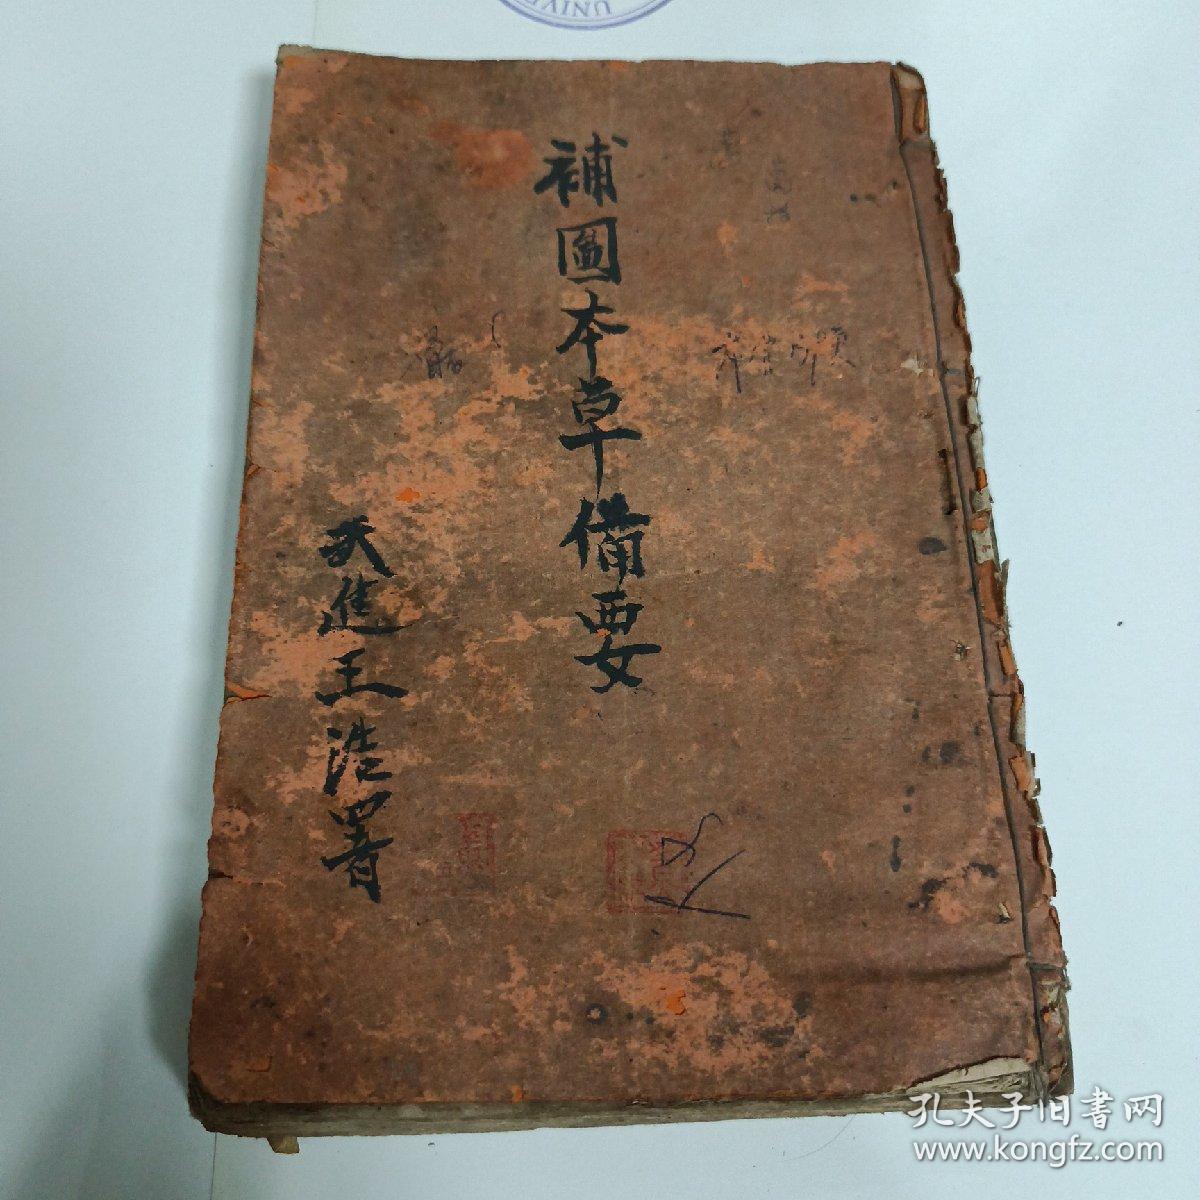 UNIV
補圖本草備要
武進王浩署
孔夫子旧書网
www.kongfz.com